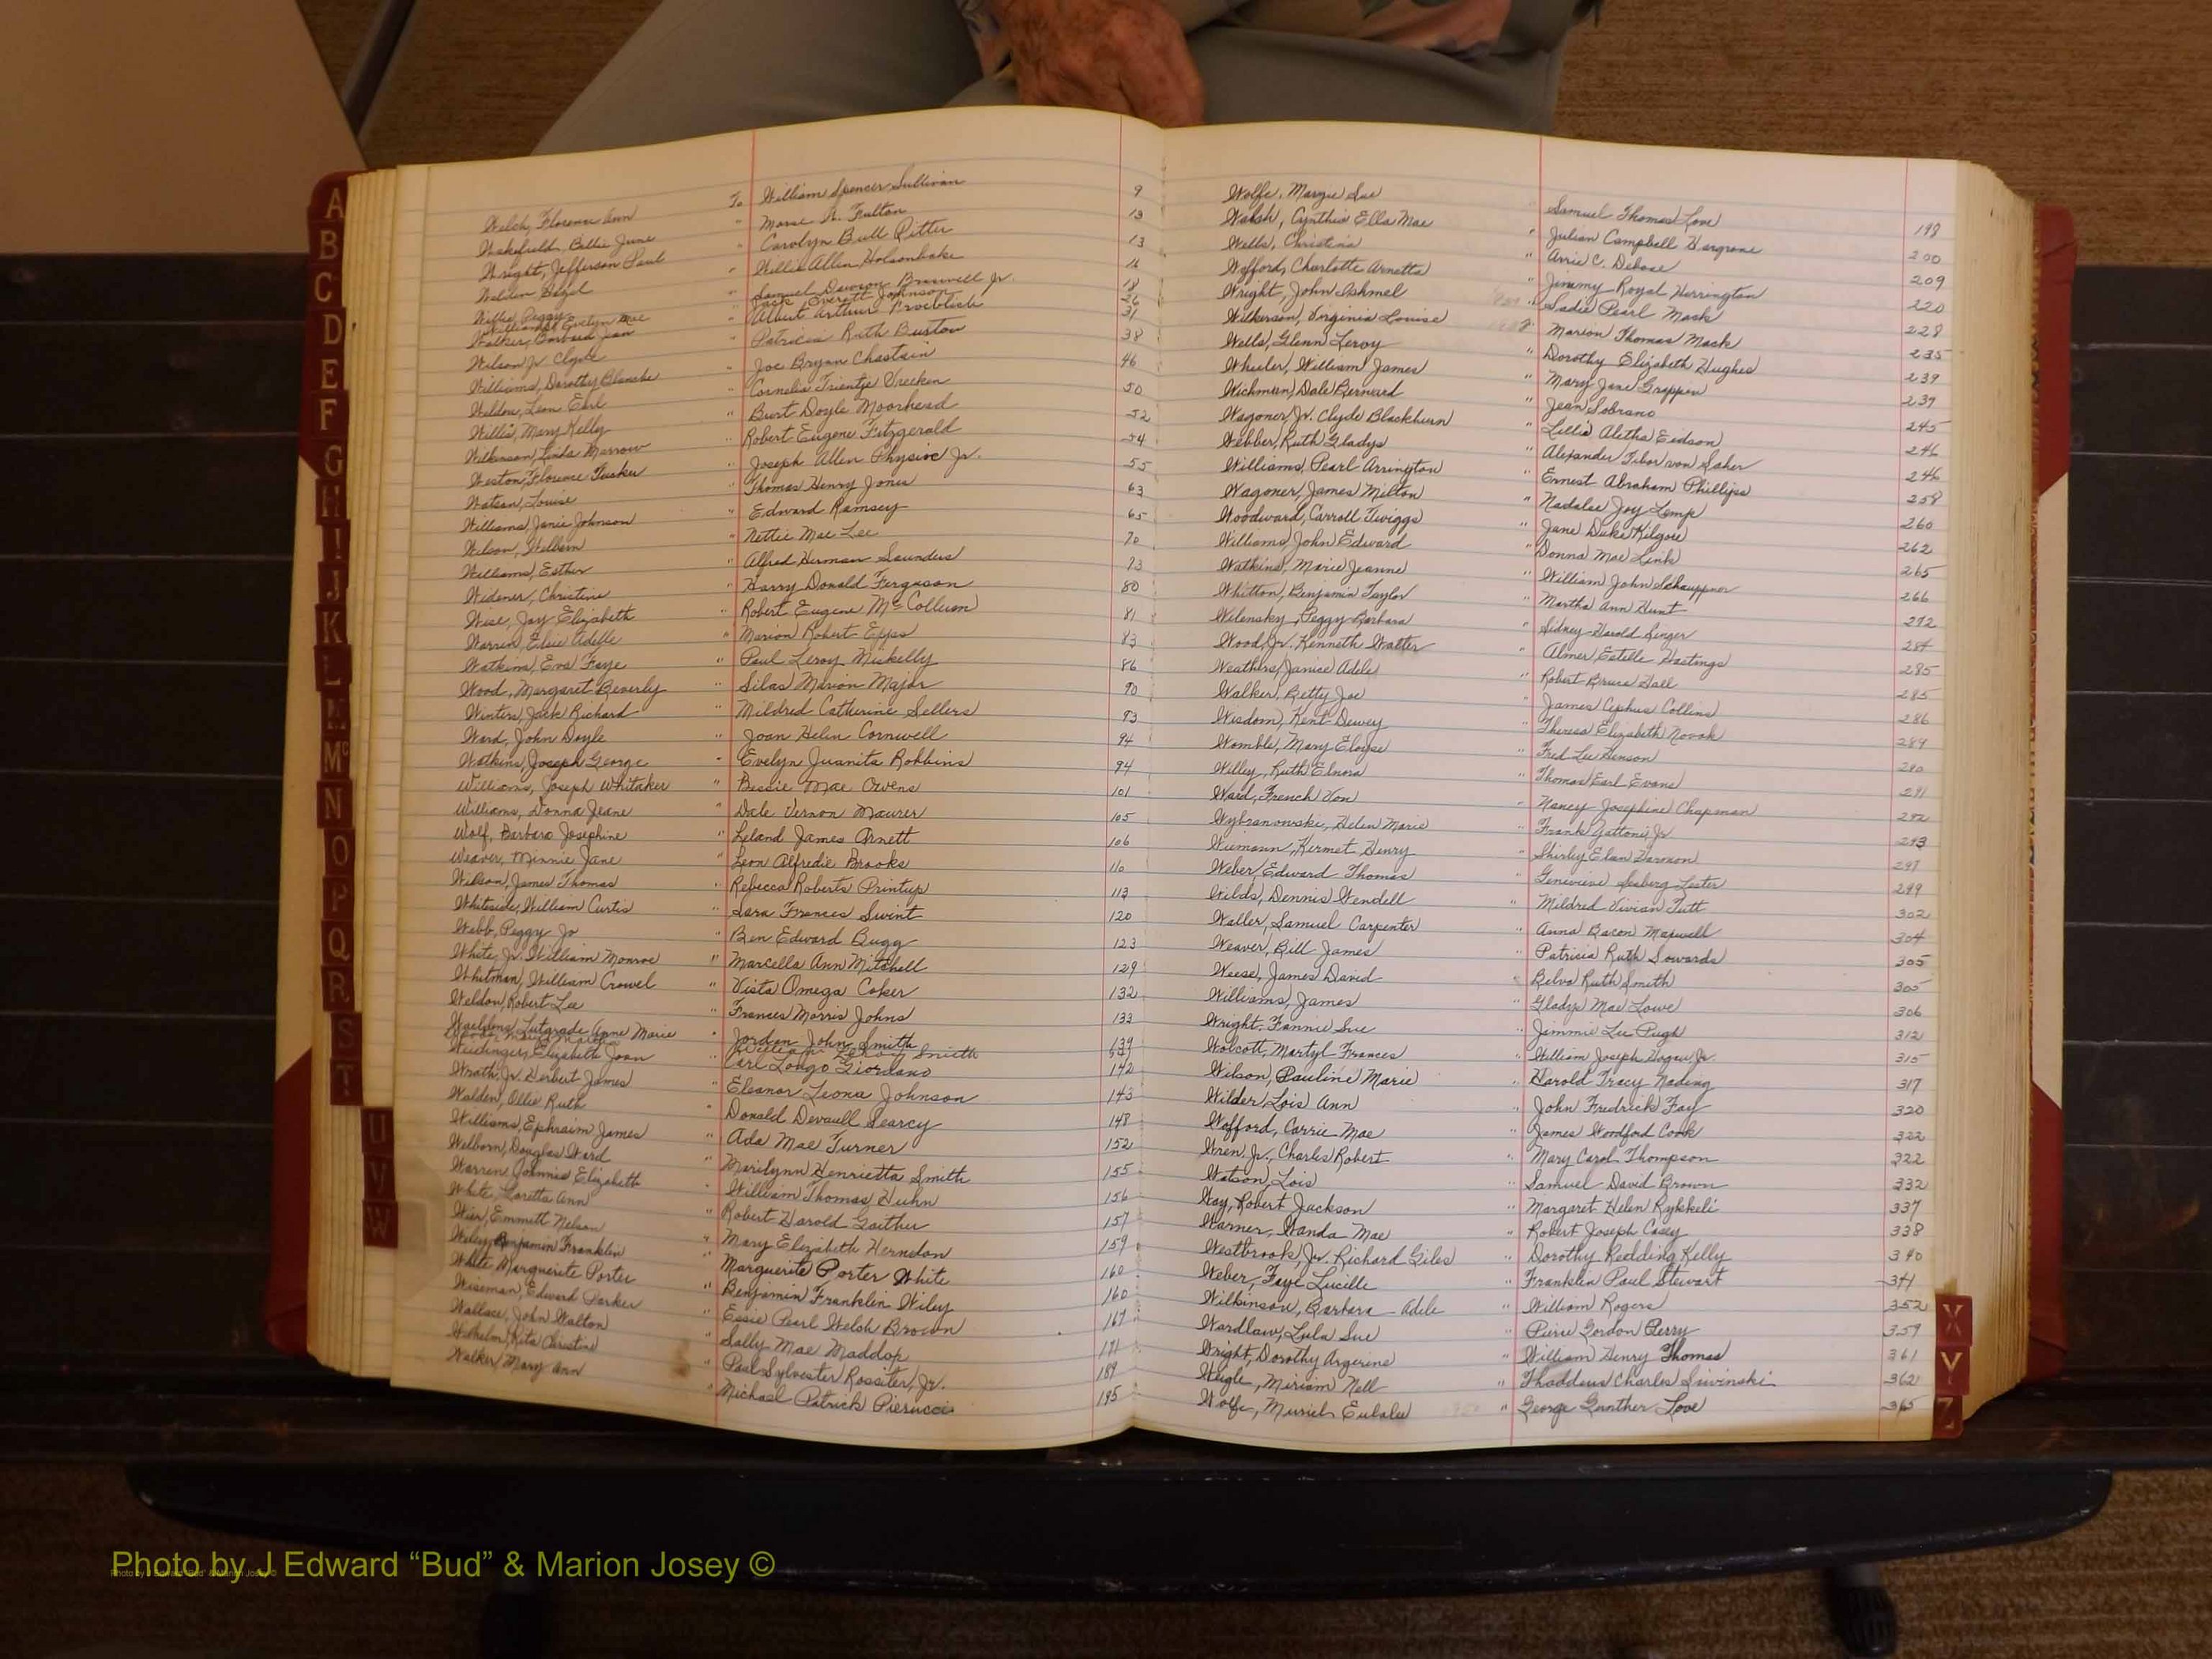 A
B
C
D
E
F
G
H
I
J
K
L
M
Mc
N
O
P
Q
R
S
T
U
V
W
Welch, Florence Ann To William Spencer Sullivan 9
Wakefield, Billie June " Morse A. Fulton 13
Wright, Jefferson Paul " Carolyn Bull Ritter 13
Hazel " Willie Allen Holsonbake 16
Willis, Peggy " Samuel Dawson Braswell Jr. 18
Williams, Evelyn Mae " Jack Everett Johnson 26
Walker, Barbara Jean " Albert Arthur 31
Wilson Jr. Clyde " Patricia Ruth Burton 38
Williams, Dorothy Blanche " Joe Bryan Chastain 46
Weldon, Leon Earl " Cornelia Trientje Vrecken 50
Willis, Mary Kelly " Burt Doyle Moorhead 52
Wilkinson, Linda Morrow " Robert Eugene Fitzgerald 54
Weston, Florence Tucker " Joseph Allen Physioc Jr. 55
Watson, Louise " Thomas Henry Jones 63
Williams, Janie Johnson " Edward Ramsey 65
Wilson, Welborn " Nettie Mae Lee 70
Williams, Esther " Alfred Herman Saunders 73
Widener, Christine " Harry Donald Ferguson 80
Wise, Joy Elizabeth " Robert Eugene McCollum 81
Warren, Elsie Adelle " Marion Robert Epps 83
Watkins, Eva Faye " Paul Leroy Mickelly 86
Wood, Margaret Beverly " Silas Marion Major 90
Winters, Jack Richard " Mildred Catherine Sellers 93
Ward, John Doyle " Joan Helen Cornwell 94
Watkins, Joseph George " Evelyn Juanita Robbins 94
Williams, Joseph Whitaker " Bessie Mae Owens 101
Williams, Donna Jeane " Dale Vernon Maurer 105
Wolf, Barbara Josephine " Leland James Arnett 106
Weaver, Minnie Jane " Leon Alfredie Brooks 110
Wilson, James Thomas " Rebecca Roberts Printup 113
Whiteside, William Curtis " Sara Frances Swint 120
Webb, Peggy Jo " Ben Edward Bugg 123
White, Jr. William Monroe " Marcella Ann Mitchell 129
Whitman, William Crowel " Vista Omega Coker 132
Weldon, Robert Lee " Frances Morris Johns 133
Waeldens, Lutgrade Anne Marie " Jordan John Smith 139
" William LeRoy Smith
Weidinger, Elizabeth Joan " Carl Longo Giordano 142
Wrath, Jr. Herbert James " Eleanor Leona Johnson 143
Walden, Ollie Ruth " Donald Devaull Searcy 148
Williams, Ephraim James " Ada Mae Turner 152
Welborn, Douglas Ward " Marilynn Henrietta Smith 155
Warren, Joannie Elizabeth " William Thomas Huhn 156
White, Loretta Ann " Robert Harold Gaither 157
Wier, Emmett Nelson " Mary Elizabeth Herndon 159
Wiley, Benjamin Franklin " Marguerite Porter White 160
White, Marguerite Porter " Benjamin Franklin Wiley 160
Wiseman, Edward Parker " Essie Pearl Welsh Brown 167
Wallace, John Walton " Sally Mae Maddox 171
Wilhelm, Rita Christine " Paul Sylvester Rossiter, Jr. 189
Walker, Mary Ann " Michael Patrick Pierucci 195
Wolfe, Margie Sue " Samuel Thomas Love 198
Walsh, Cynthia Ella Mae " Julian Campbell Hargrove 200
Wells, Christina " Arrie C. Debose 209
Wofford, Charlotte Arnetta " Jimmy Royal Herrington 220
Wright, John Ashmel " Sadie Pearl Mack 228
Wilkerson, Virginia Louise " Marion Thomas Mack 235
Wells, Glenn Leroy " Dorothy Elizabeth Hughes 239
Wheeler, William James " Mary Jane Greppin 239
Wichman, Dale Bernard " Jean Sobrano 245
Wagoner, Jr. Clyde Blackburn " Lillie Aletha Eidson 246
Webber, Ruth Gladys " Alexander Tibor von Saher 246
Williams, Pearl Arrington " Ernest Abraham Phillips 258
Wagoner, James Milton " Nadalee Joy Lemp 260
Woodward, Carroll Twiggs " Jane Duke Kilgore 262
Williams, John Edward " Donna Mae Link 265
Watkins, Marie Jeanne " William John Schauppner 266
Whitton, Benjamin Taylor " Martha Ann Hunt 272
Wilensky, Peggy Barbara " Sidney Harold Singer 284
Wood, Jr. Kenneth Walter " Almer Estelle Hastings 285
Weathers, Janice Adele " Robert Bruce Hall 285
Walker, Betty Joe " James Cephus Collins 286
Wisdom, Kent Dewey " Theresa Elizabeth Novak 289
Womble, Mary Eloise " Fred Lee Henson 290
Willey, Ruth Elnora " Thomas Earl Evans 291
Ward, French Von " Nancy Josephine Chapman 292
Wybranowski, Helen Marie " Frank Gattoni, Jr. 293
Wiemann, Kermet Henry " Shirley Elan 297
Weber, Edward Thomas " Genevieve Lester 299
Wilds, Dennis Wendell " Mildred Vivian Tutt 302
Waller, Samuel Carpenter " Anna Bacon Maxwell 304
Weaver, Bill James " Patricia Ruth Sowards 305
Weese, James David " Belva Ruth Smith 305
Williams, James " Gladys Mae Lowe 306
Wright, Fannie Sue " Jimmie Lee Pugh 312
Wolcott, Martyl Frances " William Joseph Hogan, Jr. 315
Wilson, Pauline Marie " Harold Tracy Nading 317
Wilder, Lois Ann " John Fredrick Fay 320
Wofford, Carrie Mae " James Woodford Cook 322
Wren, Jr., Charles Robert " Mary Carol Thompson 322
Watson, Lois " Samuel David Brown 332
Way, Robert Jackson " Margaret Helen Rykkeli 337
Warner, Wanda Mae " Robert Joseph Casey 338
Westbrook, Jr. Richard Giles " Dorothy Redding Kelly 340
Weber, Faye Lucille " Franklin Paul Stewart 341
Wilkinson, Barbara Adele " William Rogers 352
Wardlaw, Lula Sue " Pierre Gordon Perry 359
Wright, Dorothy Argerine " William Henry Thomas 361
Weigle, Miriam Nell " Thaddeus Charles Siwinski 362
Wolfe, Muriel Eulalee " George Gunther Love 365
X
Y
Z
Photo by J Edward “Bud” & Marion Josey ©
Photo by J Edward "Bud" & Marion Josey ©